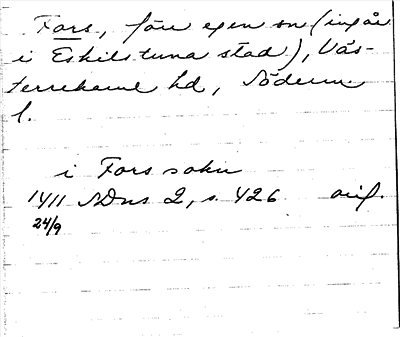 Fors, förr egen sn (ingår
i Eskilstuna stad), Väs-
terrekarne hd, Söderm.
l.
i Fors sokn
1411 SDns 2, s. 426 avif.
24/9